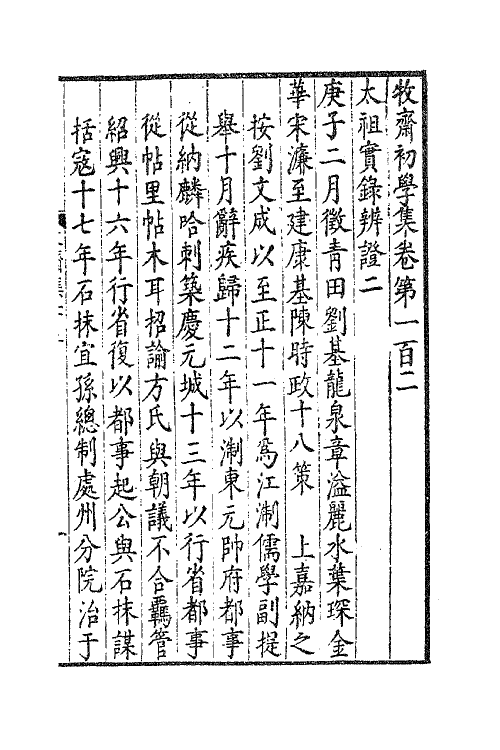 牧齋初學集卷第一百二
太祖實錄辨證二
庚子二月徵青田劉基龍泉章溢麗水葉琛金
華宋濂至建康基陳時政十八策　上嘉納之
按劉文成以至正十一年爲江淛儒學副提
舉十月辭疾歸十二年以淛東元帥府都事
從納麟哈剌築慶元城十三年以行省都事
從帖里帖木耳招諭方氏與朝議不合羈管
紹興十六年行省復以都事起公與石抹謀
括寇十七年石抹宜孫總制處州分院治于